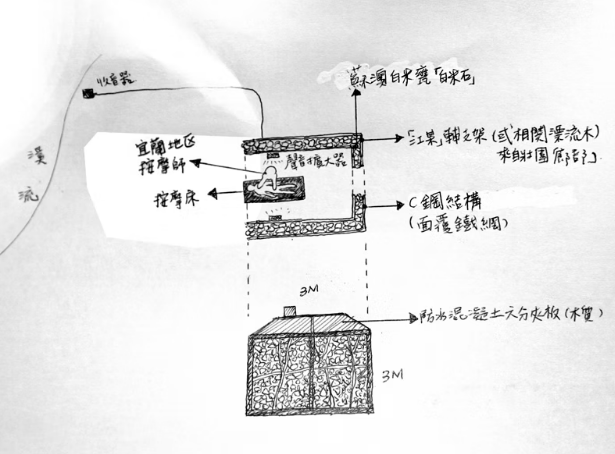 收音器
蘇澳白米甕「白米石」
宜蘭地区
按摩師
聲音擴大器
「江某」輔支架(或相関漂流木)
按摩床
C鋼結構
(面覆鐵網)
溪
流
3M
防水混凝土六分夾板(木質)
3M